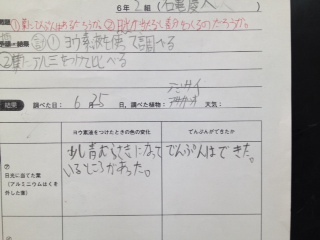 6年 2 組 (石竜
問題 ①葉にでんぷんはあるだろうか。②日光が当たると養分をつくるのだろうか。
予想・計画 計 ① ヨウ素液を使って調べる
②葉にアルミをつけて比べる
結果 調べた日: 6月25日、調べた植物: アジサイ アサガオ 天気:
ヨウ素液をつけたときの色の変化 でんぷんができたか
㋐
日光に当てた葉
(アルミニウムはくを
外した葉)
少し青むらさきになって
いるところがあった。
でんぷんはできた。